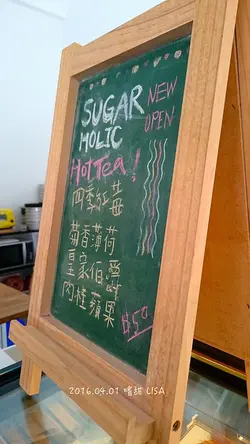 SUGAR
MOLIC
NEW
OPEN
HOTTea!
四季紅莓
菊香薄荷
皇家伯爵
肉桂蘋果
$50
2016.04.01 嗜甜 LISA